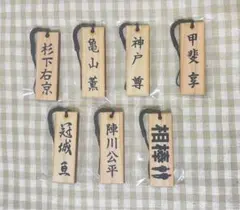 杉下右京
亀山薫
神戸尊
甲斐享
冠城亘
陣川公平
相棒竹